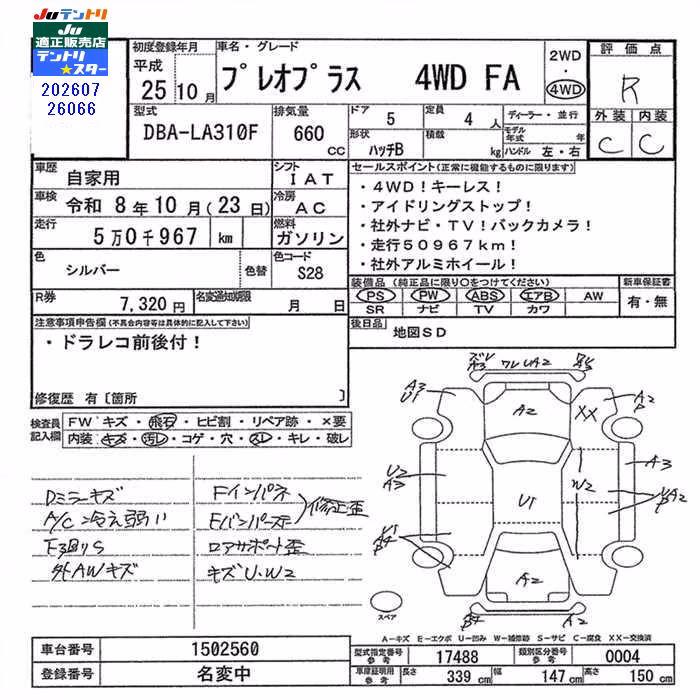 Juテントリ
Ju
適正販売店
テントリ
★スター
202607
26066
初度登録年月
平成
25 10月
車名・グレード
プレオプラス 4WD FA
2WD
・
4WD
評価点
R
外装 内装
C C
型式
DBA-LA310F
排気量
660
CC
ドア
5
定員
4人
ディーラー・並行
形状
ハッチB
積載
kg
モデル年式 年
ハンドル 左・右
車歴
自家用
シフト
IAT
車検
令和 8年10月(23日)
冷房
AC
走行
5万0千967 km
燃料
ガソリン
色
シルバー
色替
色コード
S28
R券
7,320円
名変通知期限
月 日
セールスポイント(正常に機能するものに限ります)
・4WD!キーレス!
・アイドリングストップ!
・社外ナビ・TV!バックカメラ!
・走行50967km!
・社外アルミホイール!
装備品(純正品に限り〇をつけてください)
PS PW ABS エアB AW
SR ナビ TV カワ
新車保証書
有・無
後日品
地図SD
注意事項申告欄(不具合内容等は具体的に記入して下さい)
・ドラレコ前後付!
修復歴 有〔箇所 〕
検査員
記入欄
FW キズ・飛石・ヒビ割・リペア跡・×要
内装・キズ・汚レ・コゲ・穴・スレ・キレ・破レ
Dミラーキズ
A/C 冷え弱い
下廻りS
外AWキズ
Fインパネ
Eバンパーステー
修正歪
ロアサポート歪
キズU.W2
A3
U1
A2
A2
P
XX
U2
A3
A3
W2
U1
A2
B4
A2
スペア
A−キズ E−エクボ U−凹み W−補修跡 S−サビ C−腐食 XX−交換済
車台番号
1502560
登録番号
名変中
型式指定番号
参考
17488
類別区分番号
参考
0004
車庫証明用
参考
長さ
339 cm
幅
147 cm
高さ
150 cm